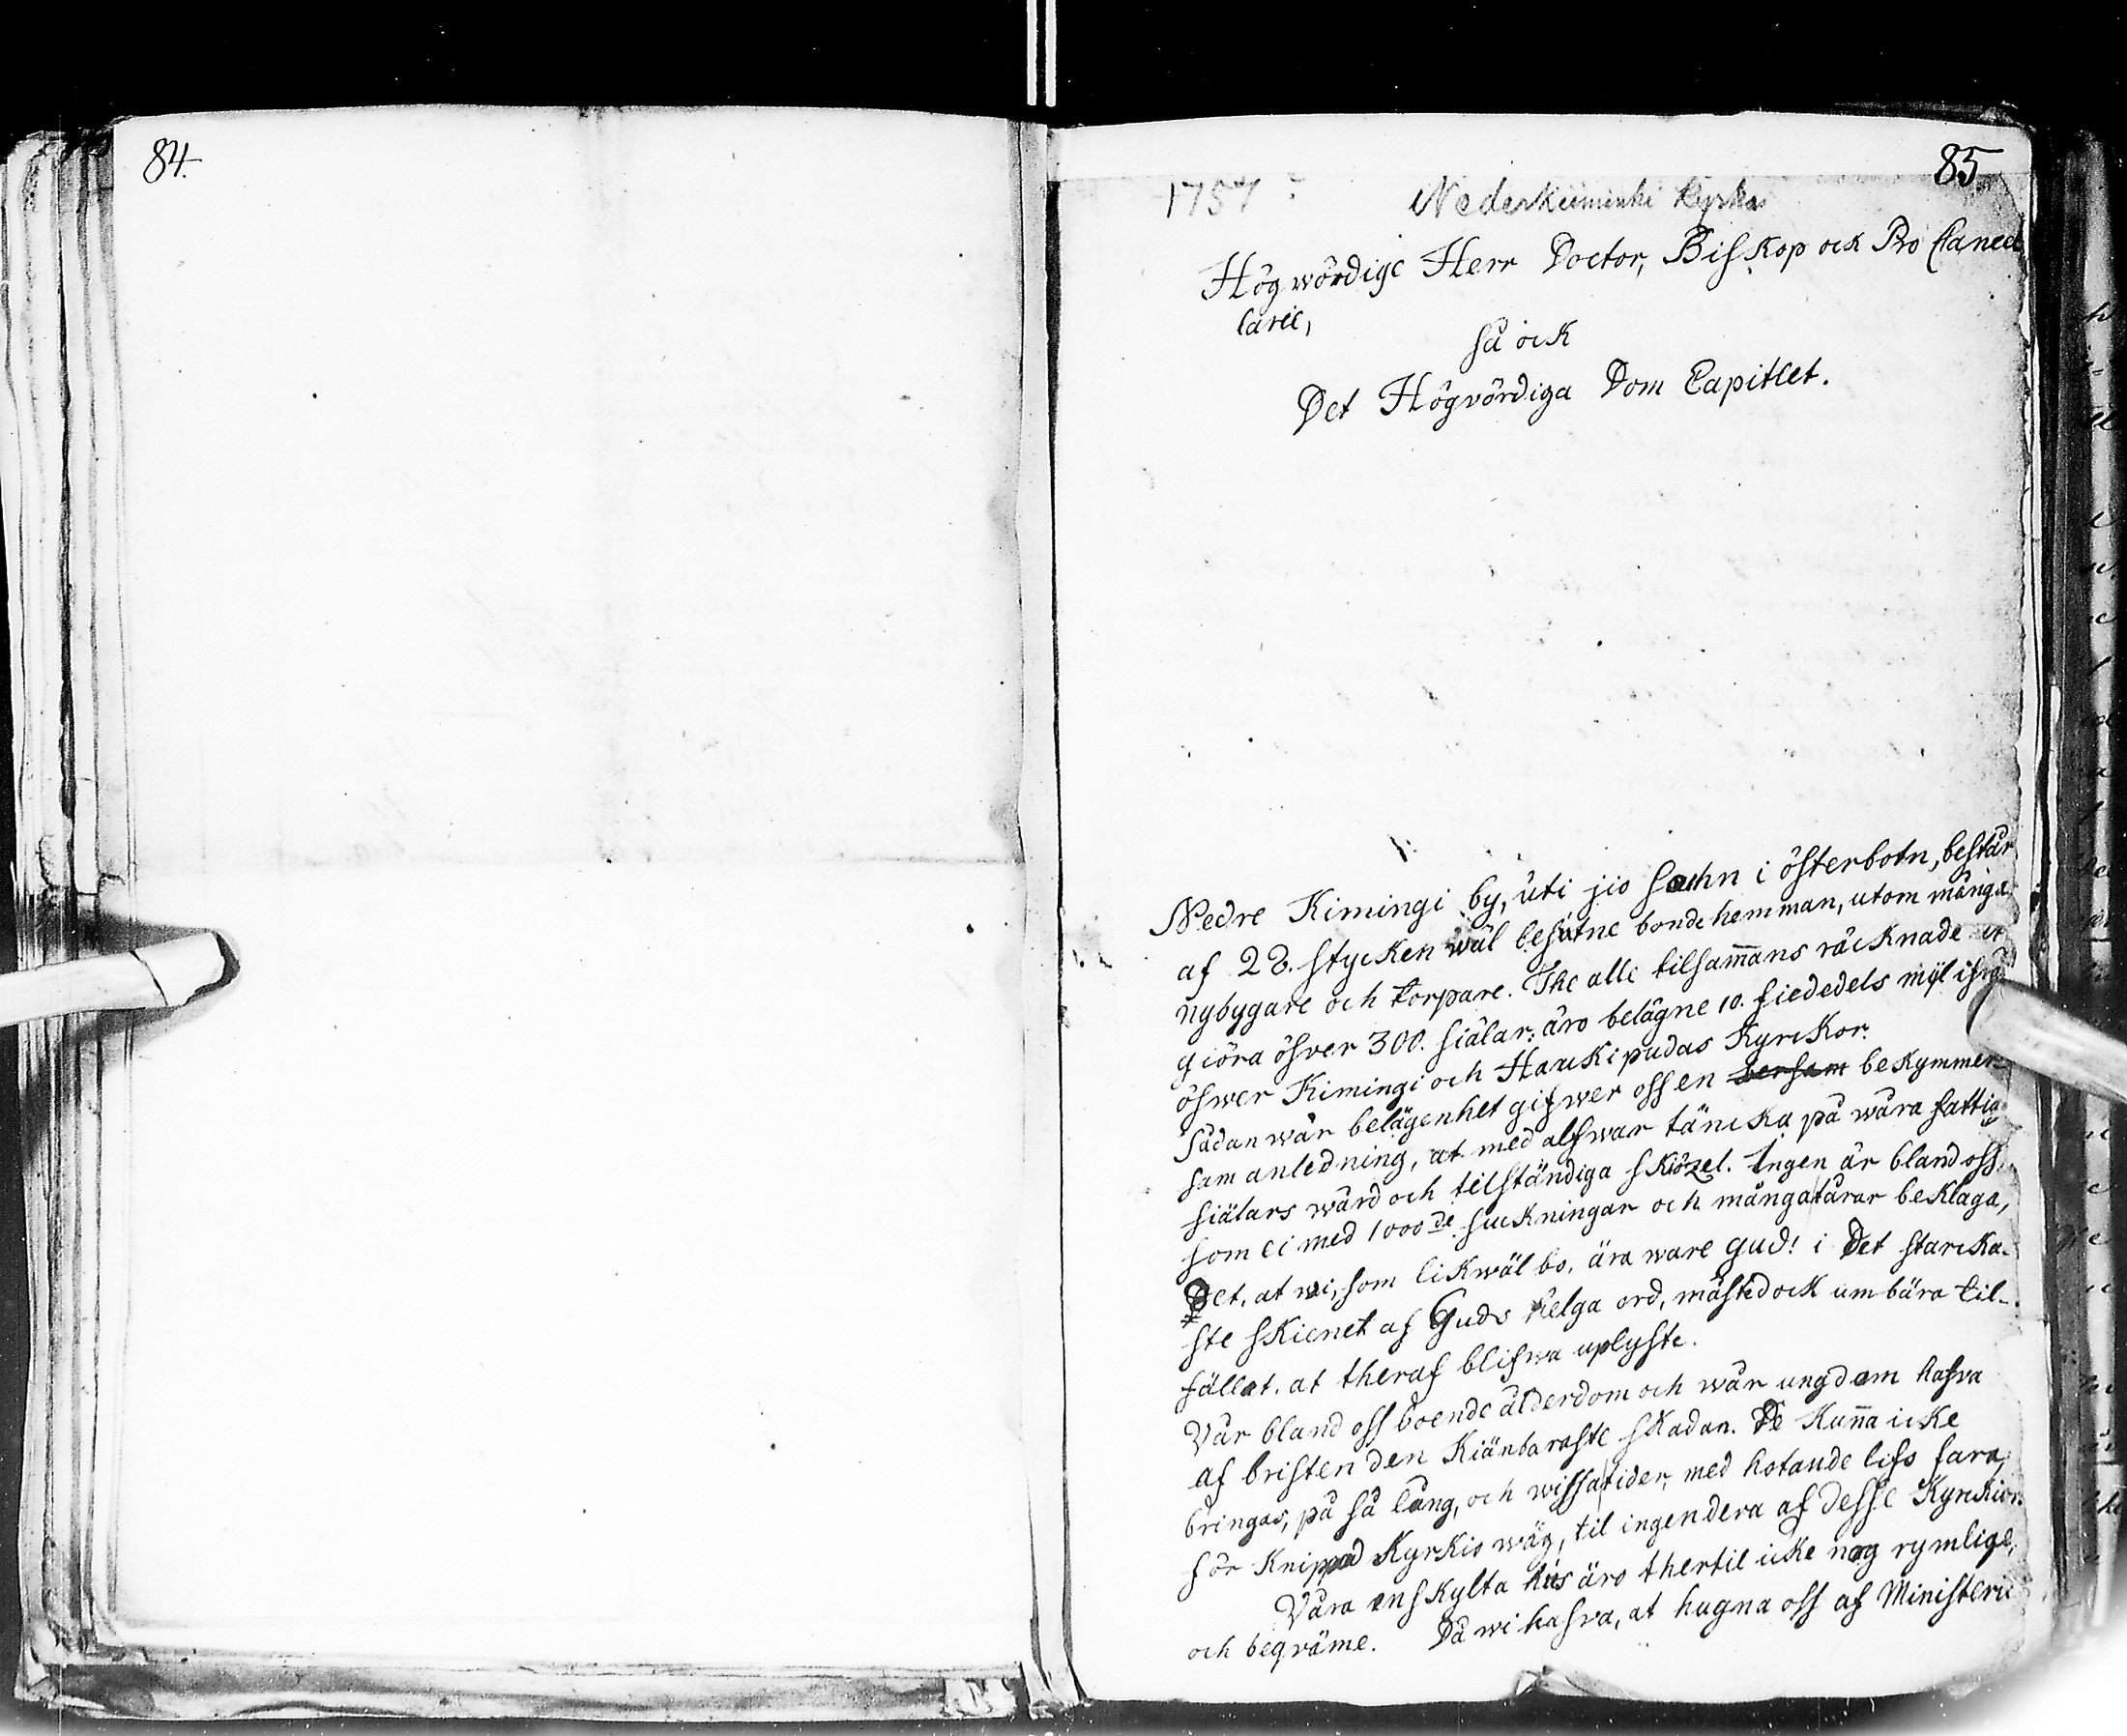 84.
85
1757 ?
Nederkiiminki kyrka
Högwördige Herr Doctor, Biskop ock Pro Cancel
larie,
så ock
Det Högvördiga Dom Capitlet.
Nedre Kimingi by, uti jio Sochn i österbotn, består
af 28. stycken wäl besutne bonde hemman, utom många
nybygare och torpare. The alle tilsam̄ans räcknade
giöra öfver 300. siälar: äro belägne 10. fiededels myl ifrå
öfwer Kimingi och Haukipudas Kyrckor.
Sådan wår belägenhet gifwer oss en bekymmer
sam anledning, at med alfwar täncka på wåra fattiga
siälars wård och tilständiga skiözel. Ingen är bland oss,
som ei med 1000de suckningar och många tårar beklaga,
Det, at wi, som likwäl bo, ära ware gud! i Det starcka-
ste skienet af Guds helga ord, måste dock umbära til-
fället. at theraf blifwa uplyste.
Vår bland oss boende ålderdom och wår ungdom hafva
af bristen den kiänbaraste skadan. De kun̄a icke
bringas, på så lång, och wissa tider, med hotande lifs fara,
för knippad Kyrkio wäg, til ingendera af desse Kyrckior.
Våra enskylta hus äro thertil icke nog rymlige,
och beqväme. Då wi hafva, at hugna oss af Ministerii